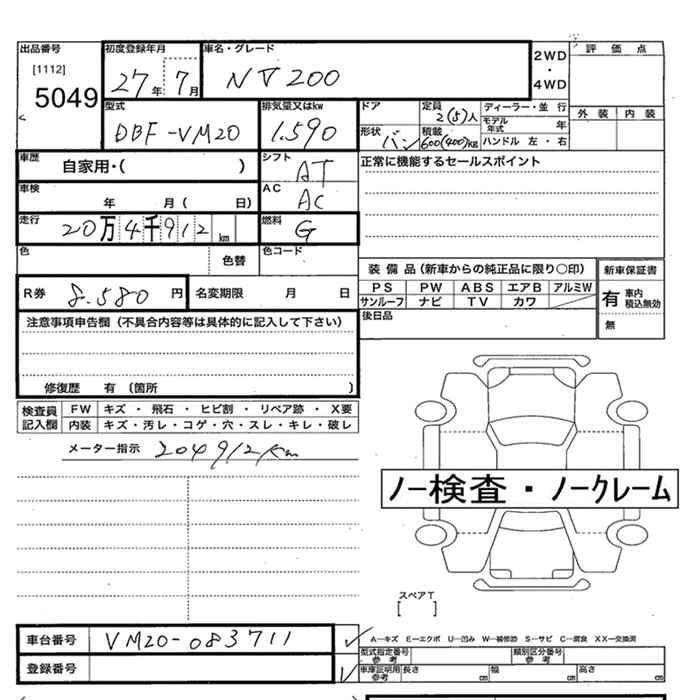 出品番号 初度登録年月 車名・グレード
[1112] 5049 27年 7月 NV200 2WD・4WD 評価点
型式 排気量又はkw ドア 定員 2(5)人 ディーラー・並行 外装 内装
DBF-VM20 1.590 モデル年式 年
形状 バン 積載 600(400)kg ハンドル 左・右
車歴 自家用・( ) シフト AT 正常に機能するセールスポイント
車検 年 月( 日) AC AC
走行 20万4千912 km 燃料 G
色 色替 色コード
装備品(新車からの純正品に限り○印) 新車保証書
PS PW ABS エアB アルミW 有 車内積込無効
サンルーフ ナビ TV カワ 無
R券 8.580円 名変期限 月 日 後日品
注意事項申告欄(不具合内容等は具体的に記入して下さい)
修復歴 有(箇所 )
検査員記入欄 FW キズ・飛石・ヒビ割・リペア跡・X要
内装 キズ・汚レ・コゲ・穴・スレ・キレ・破レ
メーター指示 204912km
ノー検査・ノークレーム
スペアT
[ ]
車台番号 VM20-083711
A—キズ E—エクボ U—凹み W—補修跡 S—サビ C—腐食 XX—交換済
型式指定番号 参考 類別区分番号 参考
登録番号 車庫証明用 参考 長さ cm 幅 cm 高さ cm